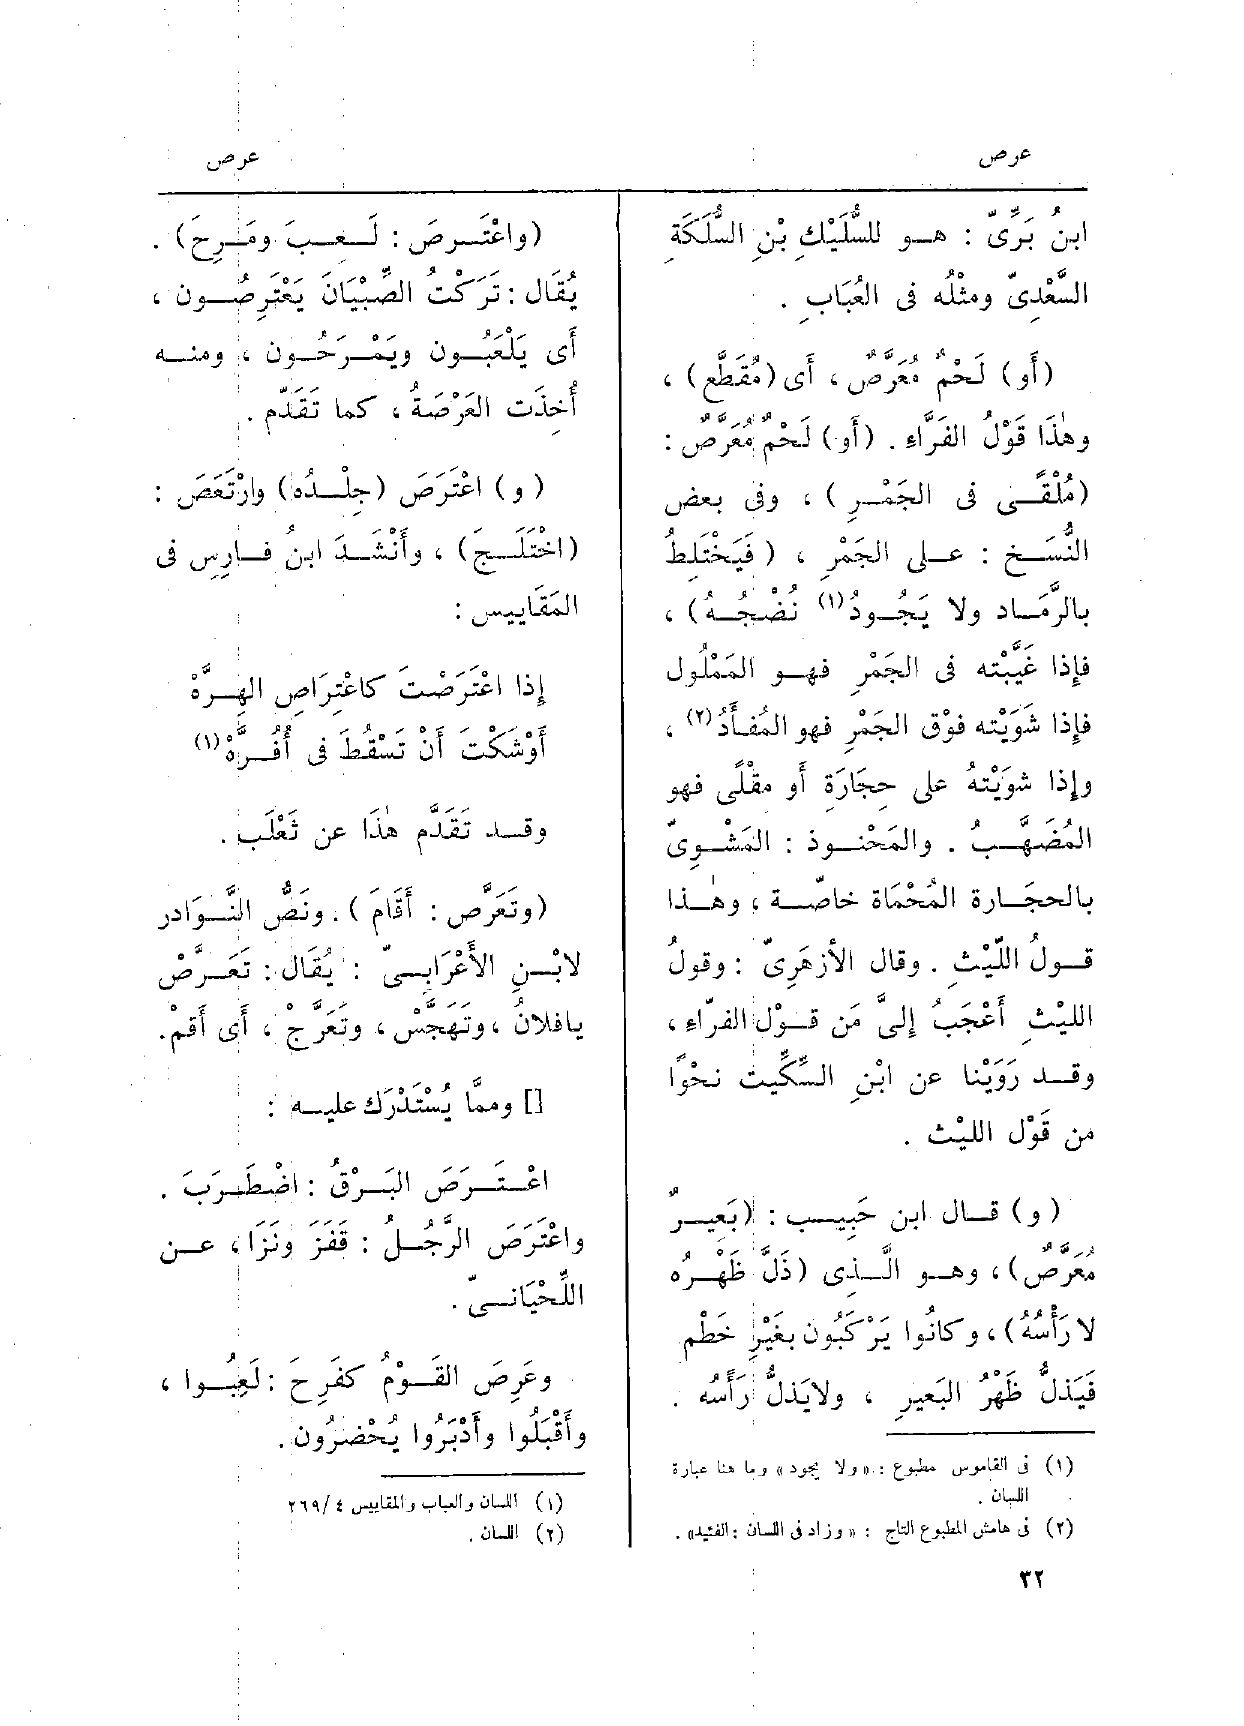 عرص
ابنُ بَرِّىّ : هـو للسُّلَيْكِ بْنِ السُّلَكَةِ
السَّعْدِىّ ومثلُه فى العُبَابِ .
(أَو) لَحْمٌ مُعَرَّصٌ ، أَى (مُقَطَّع) ،
وهٰذَا قَوْلُ الفَرَّاءِ . (أَو) لَحْمٌ مُعَرَّصٌ :
(مُلْقًـى فى الجَمْـرِ ) ، وفى بعض
النُّسَـخ : عـلى الجَمْرِ ، (فَيَخْتَلِطُ
بالرَّمَـادِ ولا يَجُـودُ(١) نُضْجُـهُ) ،
فإِذا غَيَّبْتَه فى الجَمْرِ فهـو المَمْلُول
فإِذا شَوَيْتَه فوْق الجَمْرِ فهو المُفـأَدُ(٢) ،
وإِذا شوَيْتَهُ على حِجَارَةٍ أَو مقْلًى فهو
المُضَهَّـبُ . والمَحْنـوذ : المَشْـوِىّ
بالحجَـارة المُحْمَاة خاصّـة ، وهٰـذا
قـولُ اللَّيْثِ . وقال الأَزهَرِىّ : وقولُ
الليْثِ أَعْجَبُ إِلىَّ مَن قـوْل الفرّاءِ ،
وقـد رَوَيْنا عن ابْنِ السِّكِّيت نحْوًا
من قَوْل الليْث .
(و) قـال ابن حَبِيـب : (بَعِيـرٌ
مُعَرَّصٌ) ، وهـو الَّـذِى (ذَلَّ ظَهْـرُه
لا رَأْسُهُ) ، وكانُوا يَرْكَبُون بغَيْرِ خَطْم
فَيَذلُّ ظَهْرُ البَعيرِ ، ولايَذلُّ رَأْسُه .
(١) فى القاموس مطبوع : «ولا يجود» وما هنا عبارة
اللسان .
(٢) فى هامش المطبوع التاج : « وزاد فى اللسان : الفئيد» .
٣٢
عرص
(واعْتَـرصَ : لَـعـبَ ومَـرِحَ) .
يُقَال : تَرَكْتُ الصِّبْيَانَ يَعْتَرِصُـون ،
أَى يَلْعَبُـون ويَمْـرَحُـون ، ومنـه
أُخِذَت العَرْصَةُ ، كما تَقَدّم .
(و) اعْتَرَصَ (جِلْـدُه) وارْتَعَصَ :
(اخْتَلَـجَ) ، وأَنْشَـدَ ابنُ فـارِسٍ فى
المَقَاييس :
إِذا اعْتَرَصْتَ كاعْتِرَاصِ الهِـرَّهْ
أَوْشَكْتَ أَنْ تَسْقُطَ فى أُفُـرَّهْ(١)
وقـد تَقَدَّم هٰذَا عن ثَعْلَب .
(وتَعَرَّص : أَقَامَ ) . ونَصُّ النَّـوَادر
لابْـنِ الأَعْرَابِـىّ : يُقَال : تَعَـرَّصْ
يافلانُ ، وتَهَجَّسْ ، وتَعَرَّجْ ، أَى أَقمْ.
[] وممَّا يُسْتَدْرَك عليـه :
اعْـتَـرَصَ البَـرْقُ : اضْطَـرَبَ .
واعْتَرَصَ الرَّجُـلُ : قَفَزَ ونَزَا ، عـن
اللِّحْيَانـىّ .
وعَرِصَ القَـوْمُ كفَرِحَ : لَعِبُـوا ،
وأَقْبَلُوا وأَدْبَرُوا يُحْضِرُون .
(١) اللسان والعباب والمقاييس ٤ /٢٦٩
(٢) اللسان .